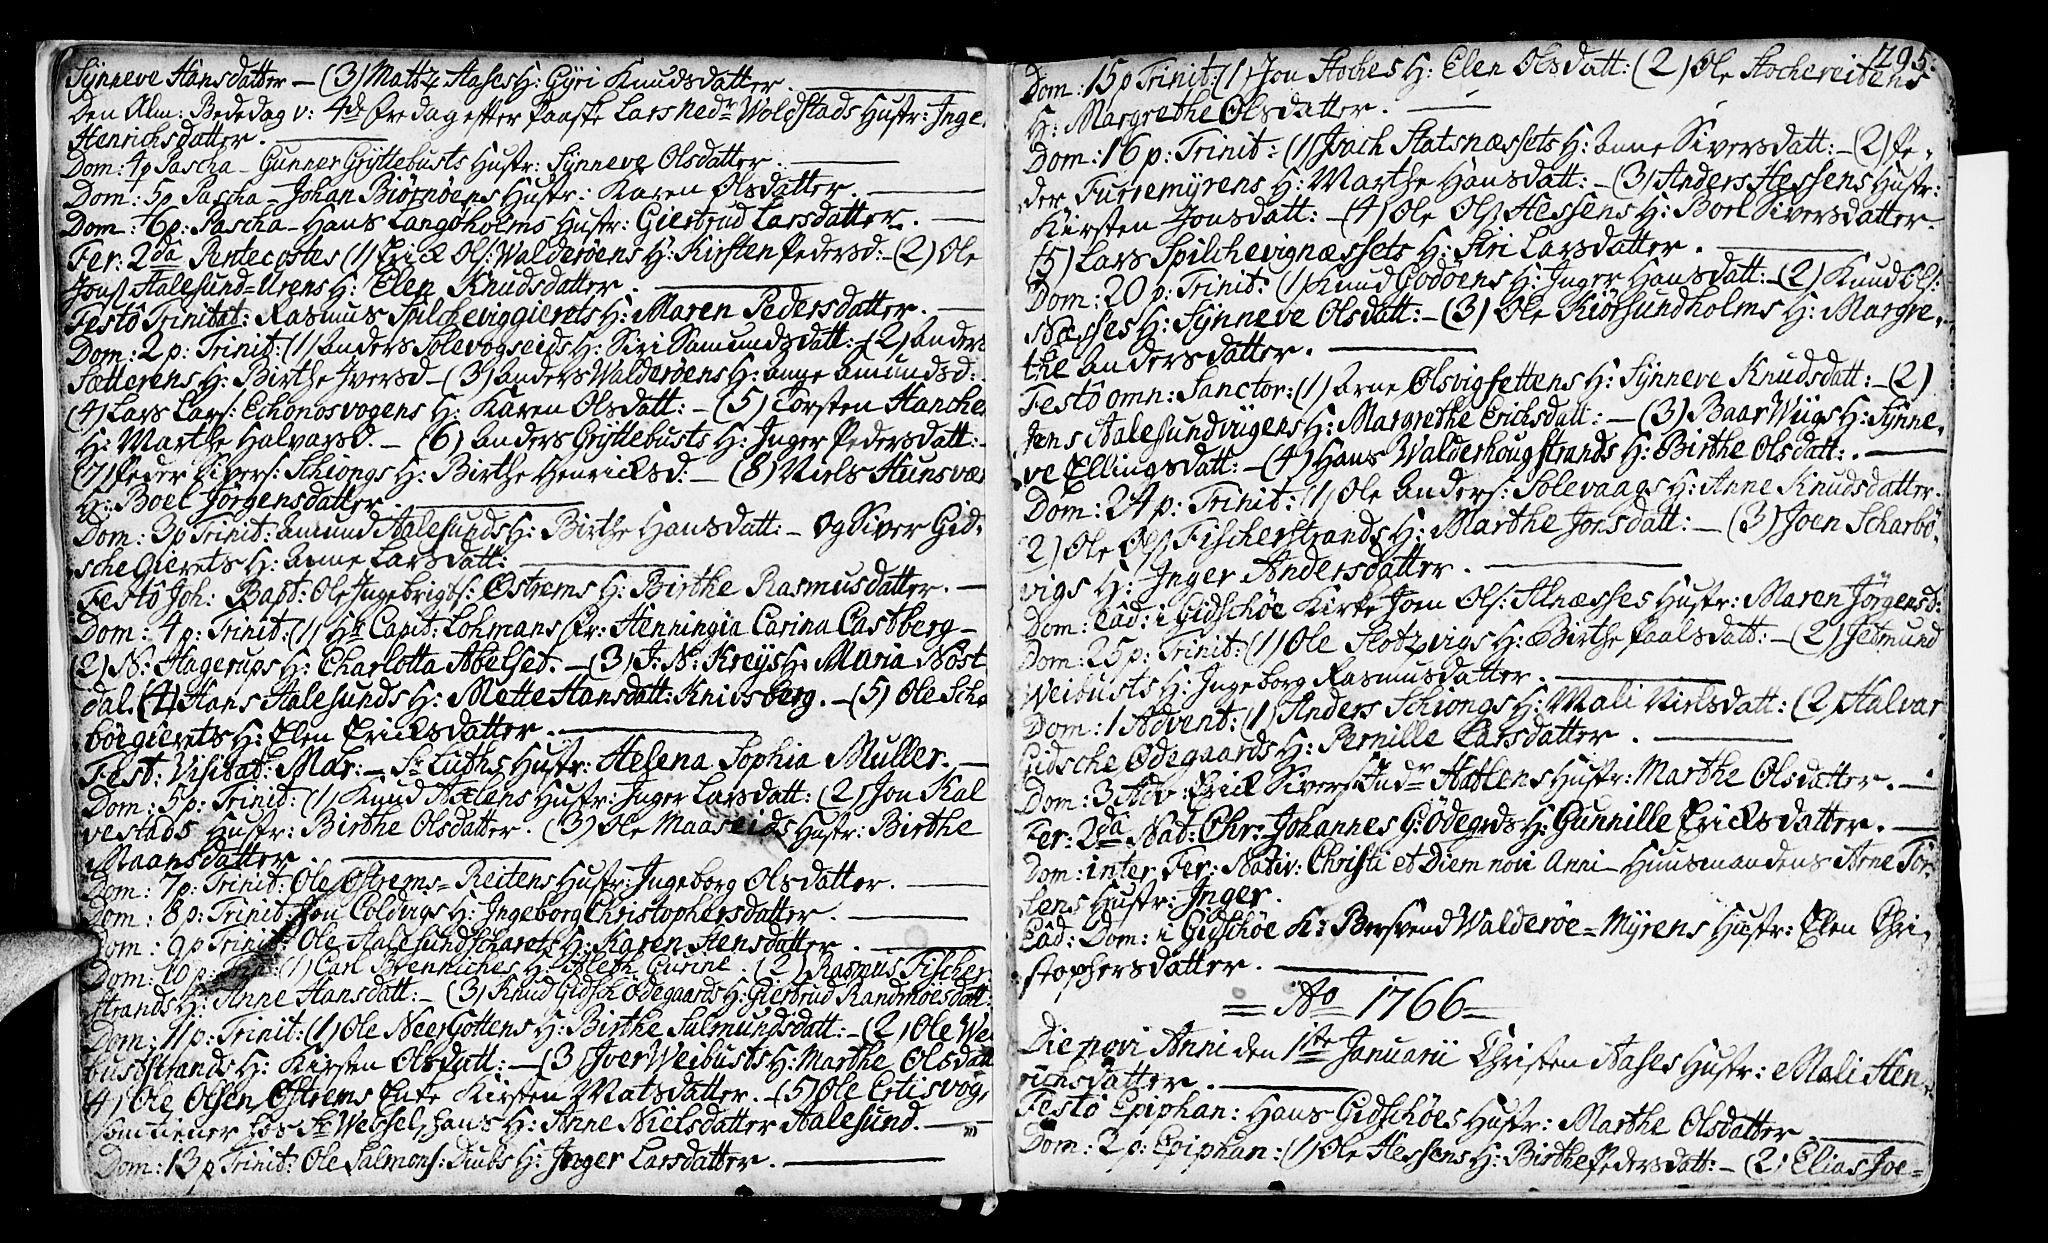 Synneve Hansdatter – (3) Matz Aases H: Gyri Knudsdatter.
Den Alm: Bededag v: 4de Fredag efter Paaske Lars Nedr Woldstads Hustr: Inge
Henrichsdatter.
Dom: 4 p Pascha – Gunner Gryttebusts Hustr: Synneve Olsdatter.
Dom: 5 p Pascha – Johan Biørnøens Hustr: Karen Olsdatter.
Dom: 6 p: Pascha – Hans Langøholms Hustr: Giertrud Larsdatter.
Fer: 2da Pentecostes (1) Erick Ols: Walderøens H: Kirsten Pedersd: – (2) Ole
Jons: Aalesund=Urens H: Elen Knudsdatter.
Festô Trinitat: Rasmus Spilcheviggierets H: Maren Pedersdatter.
Dom: 2 p: Trinit: (1) Anders Solevogseids H: Siri Samundsdatt: – (2) Anders
Sætterens H: Birthe Iversd – (3) Anders Walderøens H: Anne Amundsd:
(4) Lars Lars: Echonosvogens H: Karen Olsdatt: – (5) Torsten Hanche
H: Marthe Halvarsd. – (6) Anders Gryttebusts H: Inger Pedersdatt: –
(7) Peder Sivers: Schiongs H: Birthe Henricksd: – (8) Niels Hunsvæ
H: Boel Jørgensdatter.
Dom: 3 p Trinit: Amund Aalesunds H: Birthe Hansdatt: – Og Siver Gid-
sche Gierets H: Anne Larsdatt:
Festô Joh: Bapt: Ole Ingebrigts: Østrems H: Birthe Rasmusdatter.
Dom: 4 p: Trinit: (1) Hr Capit: Lohmans Fr: Henningia Carina Castberg –
(2) N: Hagerups H: Charlotta Abelset. – (3) J: N: Kreys H: Maria Nøst
dal. (4) Hans Aalesunds H: Mette Hansdatt: Knivsberg. – (5) Ole Scha
bøegierets H: Elen Ericksdatter.
Fest: Visitat: Mar: – Sr Luths Hustr: Helena Sophia Muller.
Dom: 5 p: Trinit: (1) Knud Axlens Hustr: Inger Larsdatt: (2) Jon Kal
vestads Hustr: Birthe Olsdatter. (3) Ole Maaseids Hustr: Birthe
Maansdatter
Dom: 7 p: Trinit: Ole Østrems=Reitens Hustr: Ingeborg Olsdatter.
Dom: 8 p: Trinit: Jon Coldvigs H: Ingeborg Christophersdatter.
Dom: 9 p Trinit: Ole Aalesundscharets H: Karen Jensdatter.
Dom: 10 p: Trin: (1) Carl Brenniches H: Aleth Curine. (2) Rasmus Fischer
strands H: Anne Hansdatt: – (3) Knud Gidsch Ødegaards H: Giertrud Randmøesdatt.
Dom: 11 p: Trinit: (1) Ole Neer Gottens H: Birthe Salmundsdatt: – (2) Ole We
buststrands H: Kirsten Olsdatt: – (3) Iver Weibusts H: Marthe Olsdatt
4) Ole Olsen Østrems Enke Kirsten Matsdatter. – (5) Ole Ertisvog,
som tiener hos Sr Websel, hans H: Anne Nielsdatter Aalesund.
Dom: 13 p Trinit: Ole Salmons: Diubs H: Inger Larsdatter.
295.
Dom: 15 p Trinit: (1) Jon Stoches H: Elen Olsdatt: (2) Ole Stochereitens
H: Margrethe Olsdatter.
Dom: 16 p: Trinit: (1) Isach Statsnæssets H: Anne Siversdatt: – (2) Pe-
der Furremyrens H: Marthe Hansdatt: – (3) Anders Hessens Hustr:
Kirsten Jonsdatt: – (4) Ole Ols: Hessens H: Boel Siversdatter.
(5) Lars Spilchevignæssets H: Siri Larsdatter.
Dom: 20 p: Trinit: (1) Knud Godøens H: Inger Hansdatt: – (2) Knud Ols:
Næsses H: Synneve Olsdatt: – (3) Ole Kiørsundholms H: Margre-
the Andersdatter.
Festô omn: Sanctor: (1) Arne Olsvigsettens H: Synneve Knudsdatt: – (2)
Jens Aalesundvigens H: Margrethe Erichsdatt: – (3) Baar Wiigs H: Synne-
ve Ellingsdatt: – (4) Hans Walderhougstrands H: Birthe Olsdatt:.
Dom: 24 p: Trinit: (1) Ole Anders: Solevaags H: Anne Knudsdatter.
2) Ole Ols: Fischerstrands H: Marthe Jonsdatt: – (3) Joen Scharbø-
vigs H: Inger Andersdatter.
Dom: eâd: i Gidschøe Kirke Joen Ols: Alnæsses Hustr: Maren Jørgensd:
Dom: 25 p: Trinit: (1) Ole Slotzvigs H: Birthe Paalsdatt: – (2) Jetmund
Weibusts H: Ingeborg Rasmusdatter.
Dom: 1 Advent: (1) Anders Schiongs H: Mali Nielsdatt: (2) Halvar
Gidsche Ødegaards H: Pernille Larsdatter.
Dom: 3 Adv: Erick Sivers: Indr Hatlens Hustr: Marthe Olsdatter.
Fer: 2da Nat: Chr: Johannes G: Ødegrds H: Gunnille Ericksdatter.
Dom: inter Fer: Nativ: Christi et Diem novi Anni – Huusmandens Arne Tør
lens Hustr: Inger.
Eâd: Dom: i Gidschøe K: Bersvend Walderøe=Myrens Hustr: Elen Chri-
stophersdatter.
= Ao 1766 =
Die novi Anni den 1ste Januarii Christen Aases Hustr: Mali Hen-
richsdatter.
Festô Epiphan: Hans Gidschøes Hustr: Marthe Olsdatter
Dom: 2 p: Epiphan: (1) Ole Hessens H: Birthe Pedersdatt: – (2) Elias Joe=